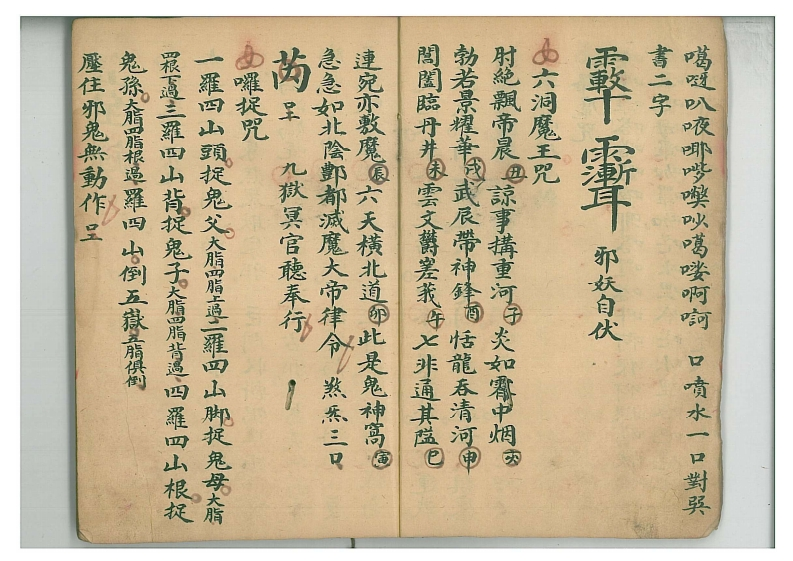 噶呀叭吙唧哕噗吵噶喽啊呵 口噴水一口對吳
書二字
邪妖自伏
六洞魔王咒
肘絶飄帝晨丑諒事搆重河子炎如霄中烟亥
勃若景耀華戌武辰帶神鋒酉恬龍吞清河申
閭闔臨丹井未雲文欝嵳我午七非通其隘巳
連宛亦敷魔辰六天橫北道卯此是鬼神窩寅
急急如北陰酆都滅魔大帝律令 炁三口
呈 九獄冥官聽奉行
囉捉咒
一羅四山頭捉鬼父大脂四脂上過二羅四山脚捉鬼母大脂
四根下過三羅四山背捉鬼子大脂四脂背過四羅四山根捉
鬼孫大脂四脂根過羅四山倒五嶽五脂俱倒
壓住邪鬼無動作呈